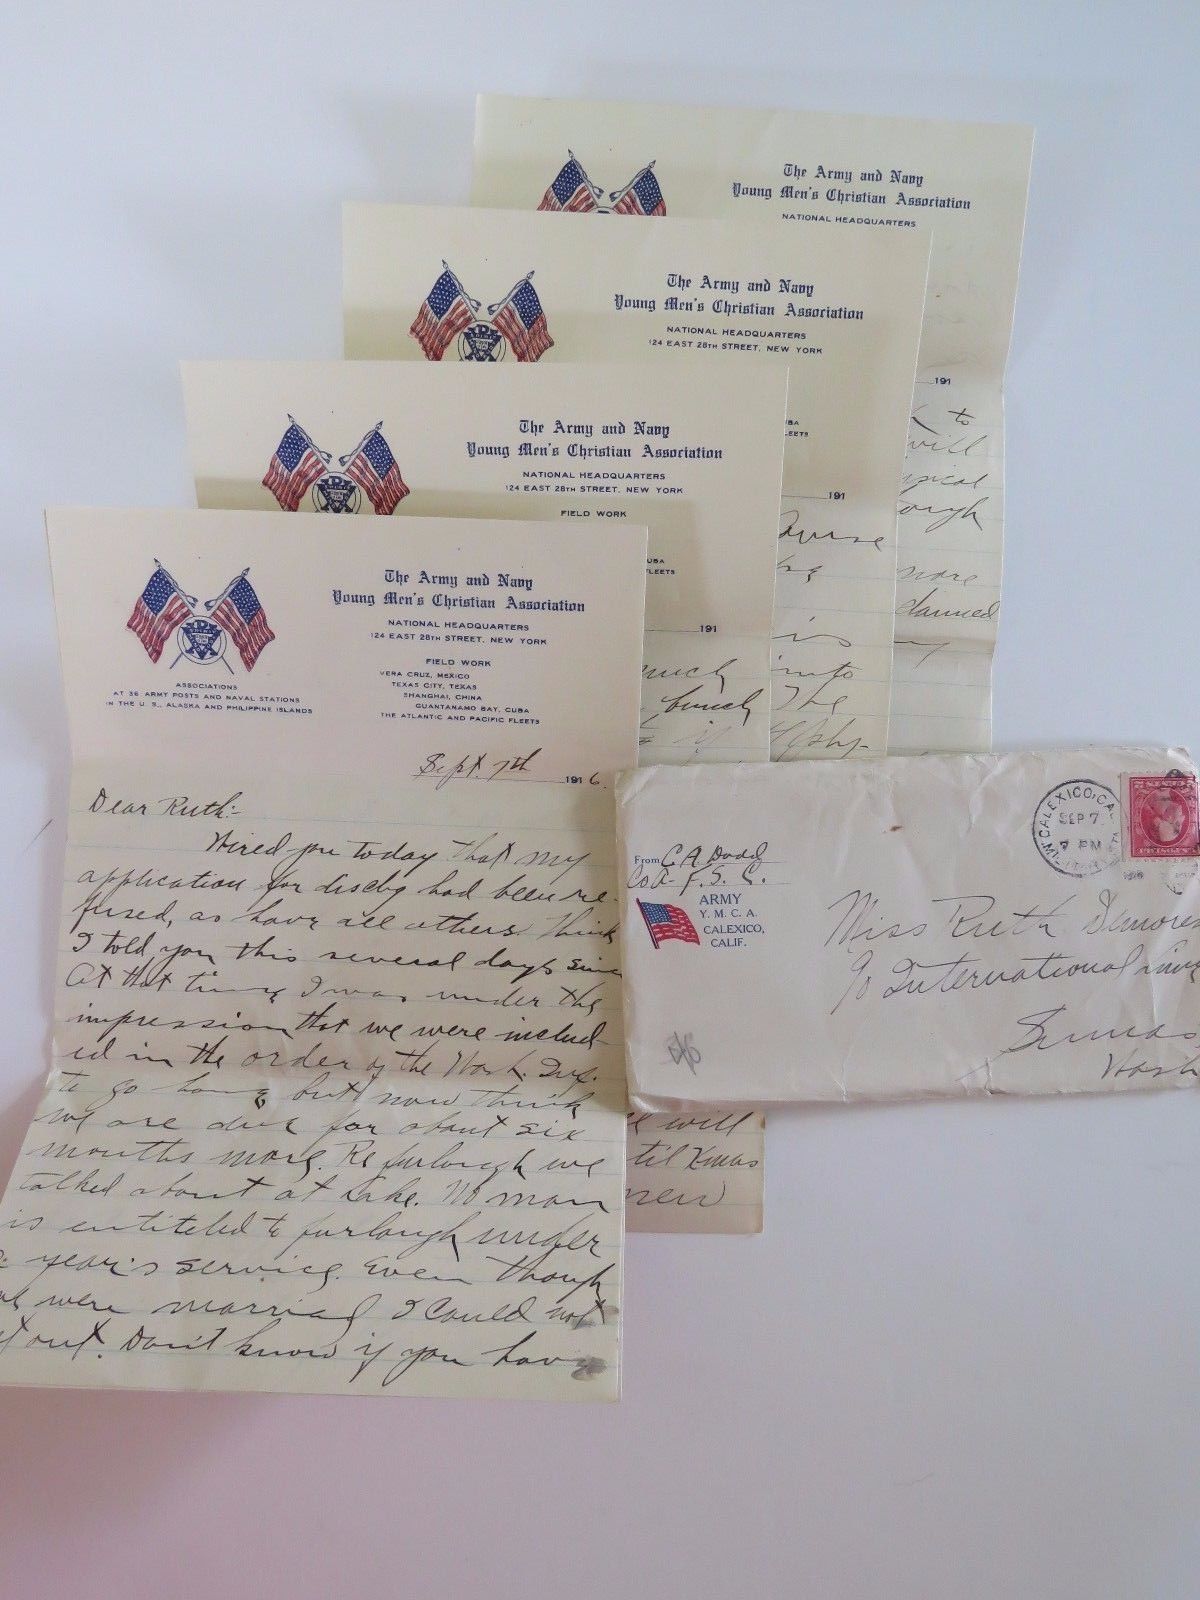 The Army and Navy
Young Men's Christian Association
NATIONAL HEADQUARTERS
191
to
will
ough
more
The Army and Navy
Young Men's Christian Association
NATIONAL HEADQUARTERS
124 EAST 28TH STREET, NEW YORK
UBA
LEETS
191
is
into
The
The Army and Navy
Young Men's Christian Association
NATIONAL HEADQUARTERS
124 EAST 28TH STREET, NEW YORK
FIELD WORK
UBA
FLEETS
191
much
bunch
if
will
til Xmas
new
The Army and Navy
Young Men's Christian Association
NATIONAL HEADQUARTERS
124 EAST 28TH STREET, NEW YORK
FIELD WORK
VERA CRUZ, MEXICO
TEXAS CITY, TEXAS
SHANGHAI, CHINA
GUANTANAMO BAY, CUBA
THE ATLANTIC AND PACIFIC FLEETS
ASSOCIATIONS
AT 36 ARMY POSTS AND NAVAL STATIONS
IN THE U. S., ALASKA AND PHILIPPINE ISLANDS
Sept. 7th 1916.
Dear Ruth:-
Wired you today that my
application for dischg had been re-
fused, as have all others. Think
I told you this several days since
At that time I was under the
impression that we were includ-
ed in the order of the Wash. Inf.
to go home but now think
we are due for about six
months more. Re furlough we
talked about at Lake. No man
is entiteled to furlough under
a year's service. Even though
we were married I could not
get out. Don't know if you have
From C A Dodd
Co A- F. S. C.
ARMY
Y. M. C. A.
CALEXICO,
CALIF.
CALEXICO, CAL
SEP 7
7 PM
Miss Ruth
c/o International
Sumas
Wash